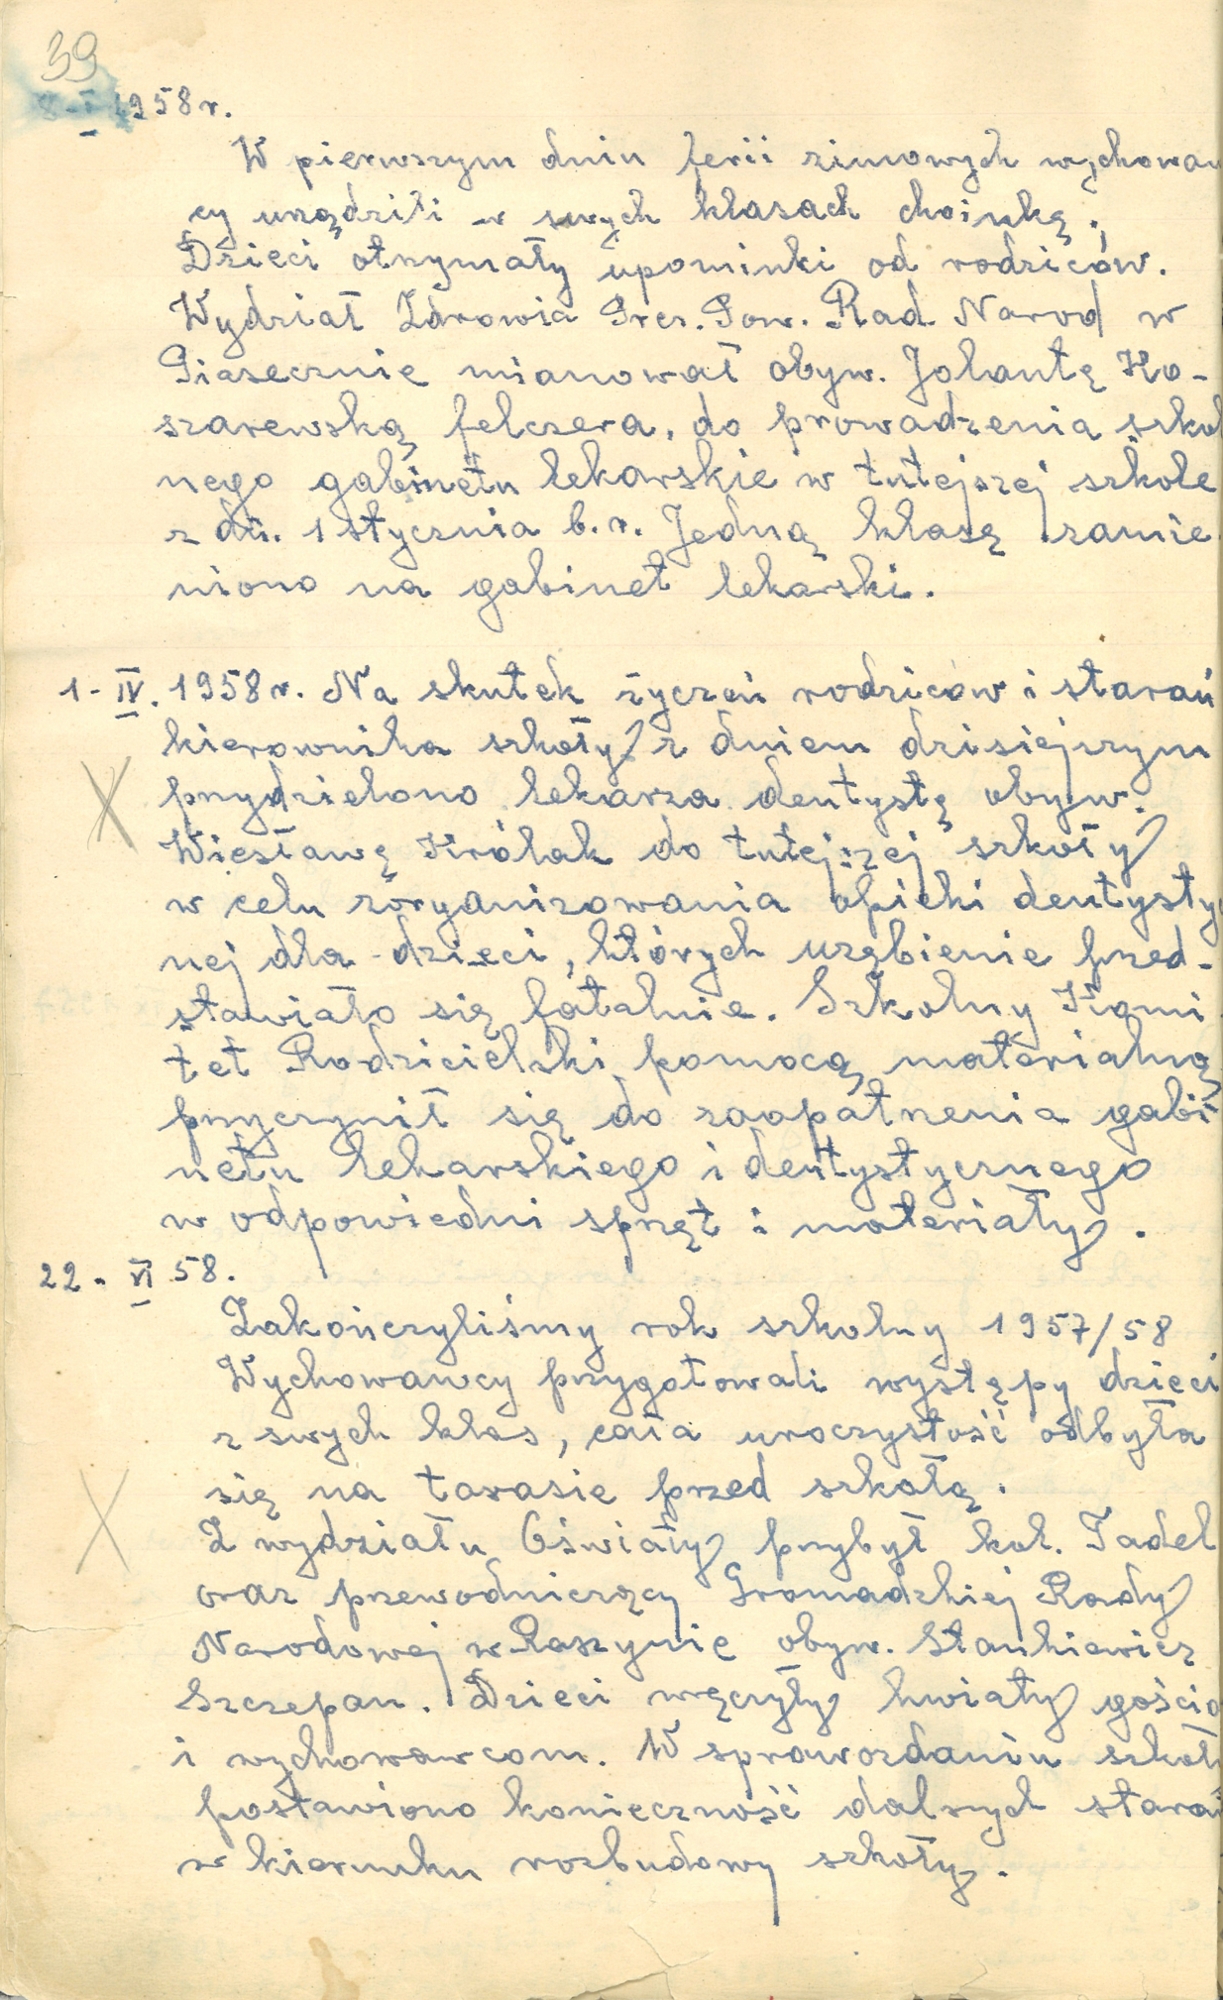 39
8-I 1958 r.
W pierwszym dniu ferii zimowych wychowaw
cy urządzili w swych klasach choinkę.
Dzieci otrzymały upominki od rodziców.
Wydział Zdrowia Prez. Pow. Rad Narod w
Piasecznie mianował obyw. Jolantę Ko-
szarewską felczera, do prowadzenia szkol
nego gabinetu lekarskie w tutejszej szkole
z dn. 1 stycznia b.r. Jedną klasę zamie
niono na gabinet lekarski.
1-IV. 1958 r. Na skutek życzeń rodziców i starań
kierownika szkoły z dniem dzisiejszym
przydzielono lekarza dentystę obyw.
Wiesławę Królak do tutejszej szkoły
w celu zorganizowania opieki dentysty
nej dla dzieci, których uzębienie przed-
stawiało się fatalnie. Szkolny Komi
tet Rodzicielski pomocą materialną
przyczynił się do zaopatrzenia gabi
netu lekarskiego i dentystycznego
w odpowiedni sprzęt i materiały.
22-VI 58.
Zakończyliśmy rok szkolny 1957/58
Wychowawcy przygotowali występy dzieci
z swych klas, cała uroczystość odbyła
się na tarasie przed szkołą.
Z wydziału Oświaty przybył kol. Tadel
oraz przewodniczący Gromadzkiej Rady
Narodowej w Raszynie obyw. Stankiewicz
Szczepan. Dzieci wręczyły kwiaty gościo
i wychowawcom. W sprawozdaniu szkoły
postawiono konieczność dalszych starań
w kierunku rozbudowy szkoły.